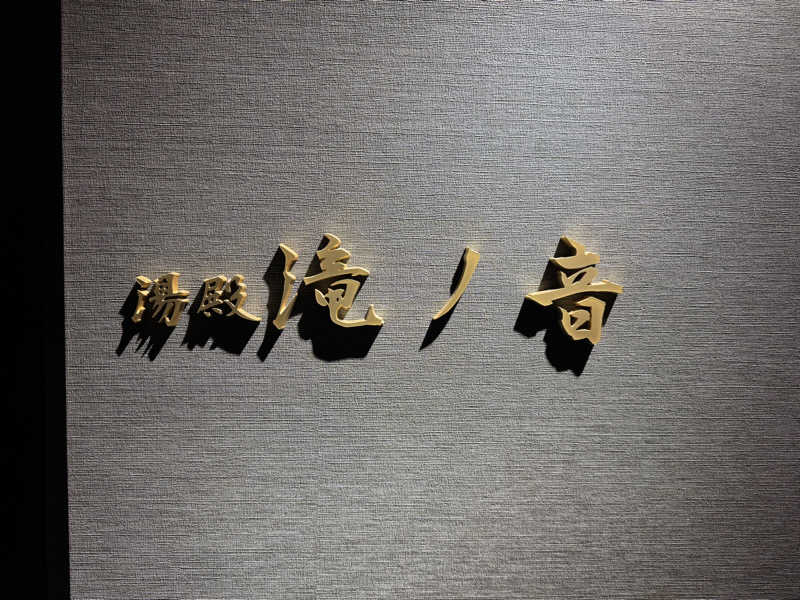 湯殿 滝ノ音